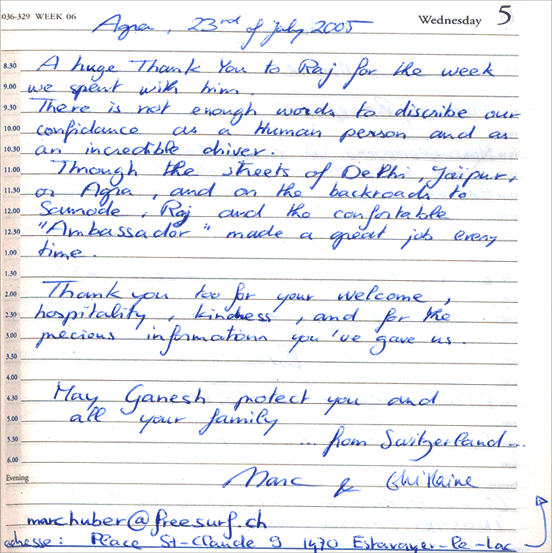 036-329 WEEK 06
Wednesday 5
Agra, 23rd of july 2005
8.30 A huge Thank You to Raj for the week
9.00 we spent with him.
9.30 There is not enough words to discribe our
10.00 confidance as a Human person and as
10.30 an incredible driver.
11.00 Through the streets of Delhi, Jaipur,
11.30 or Agra, and on the backroads to
12.00 Samode, Raj and the confortable
12.30 "Ambassador" made a great job every
1.00 time.
1.30
2.00 Thank you too for your welcome,
2.30 hospitality, kindness, and for the
3.00 precious informations you've gave us.
3.30
4.00 May Ganesh protect you and
4.30 all your family
5.00
5.30 ... from Switzerland...
6.00
Evening Marc & Ghislaine
marchuber@freesurf.ch
adresse: Place St-Claude 9 1470 Estavayer-le-Lac